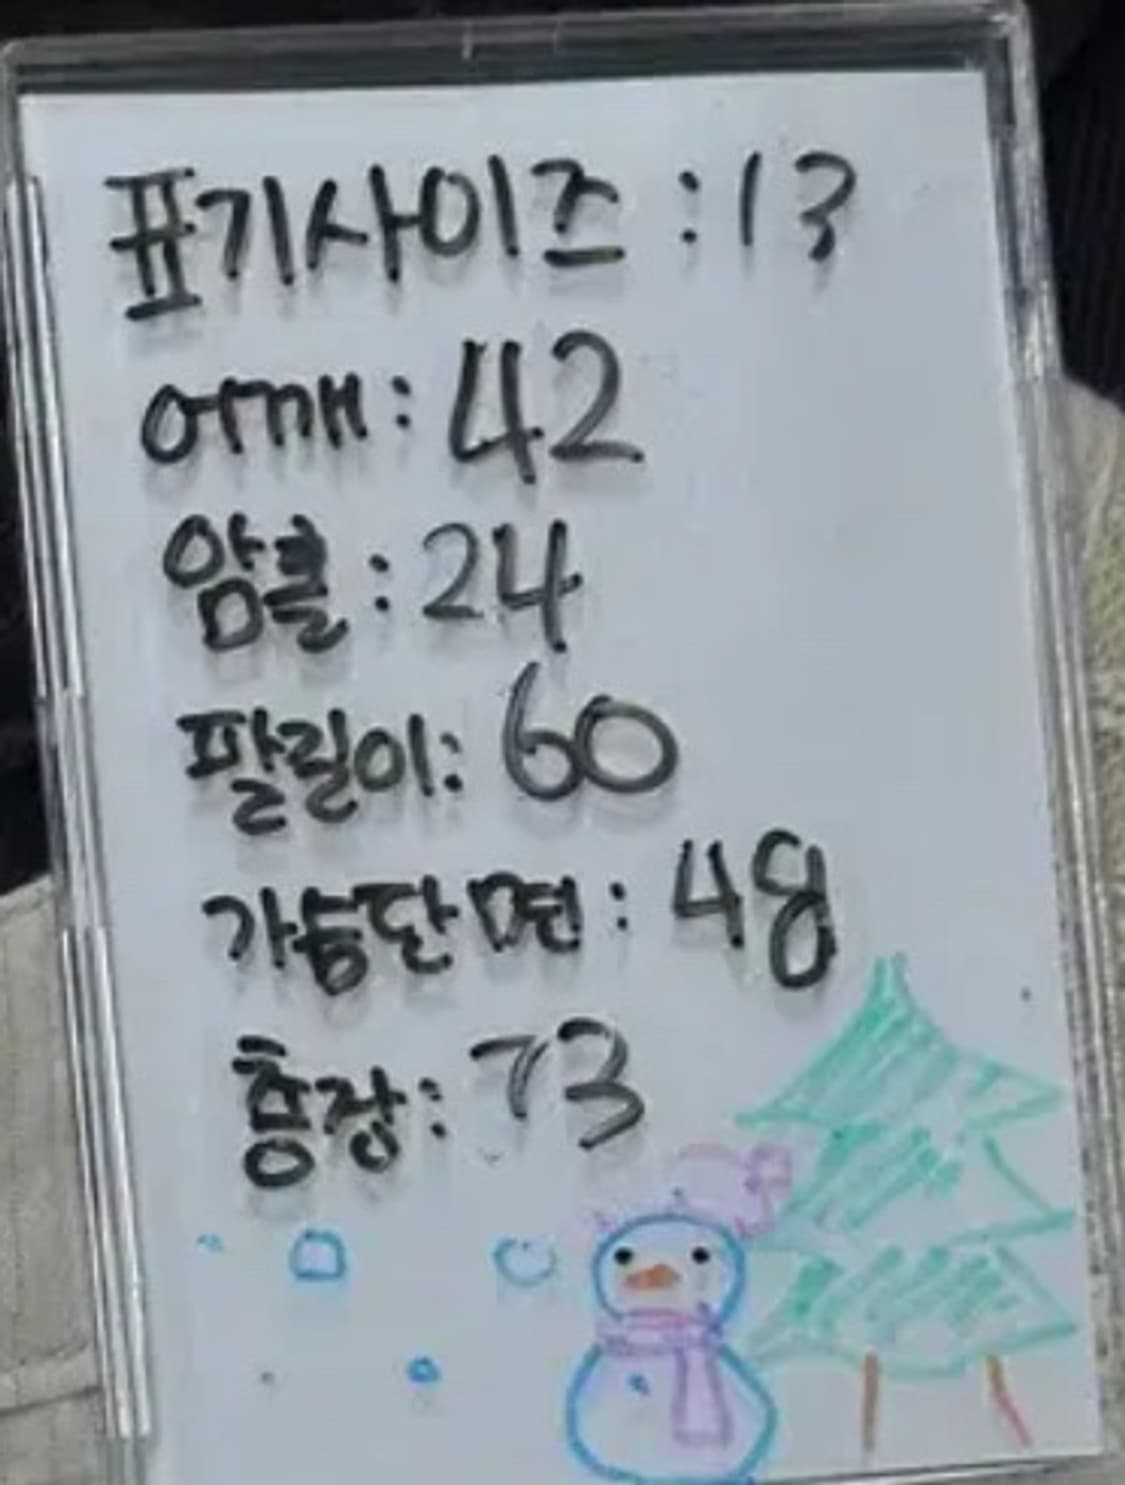 표기사이즈 : 13
어깨 : 42
암홀 : 24
팔길이 : 60
가슴단면 : 48
총장 : 73